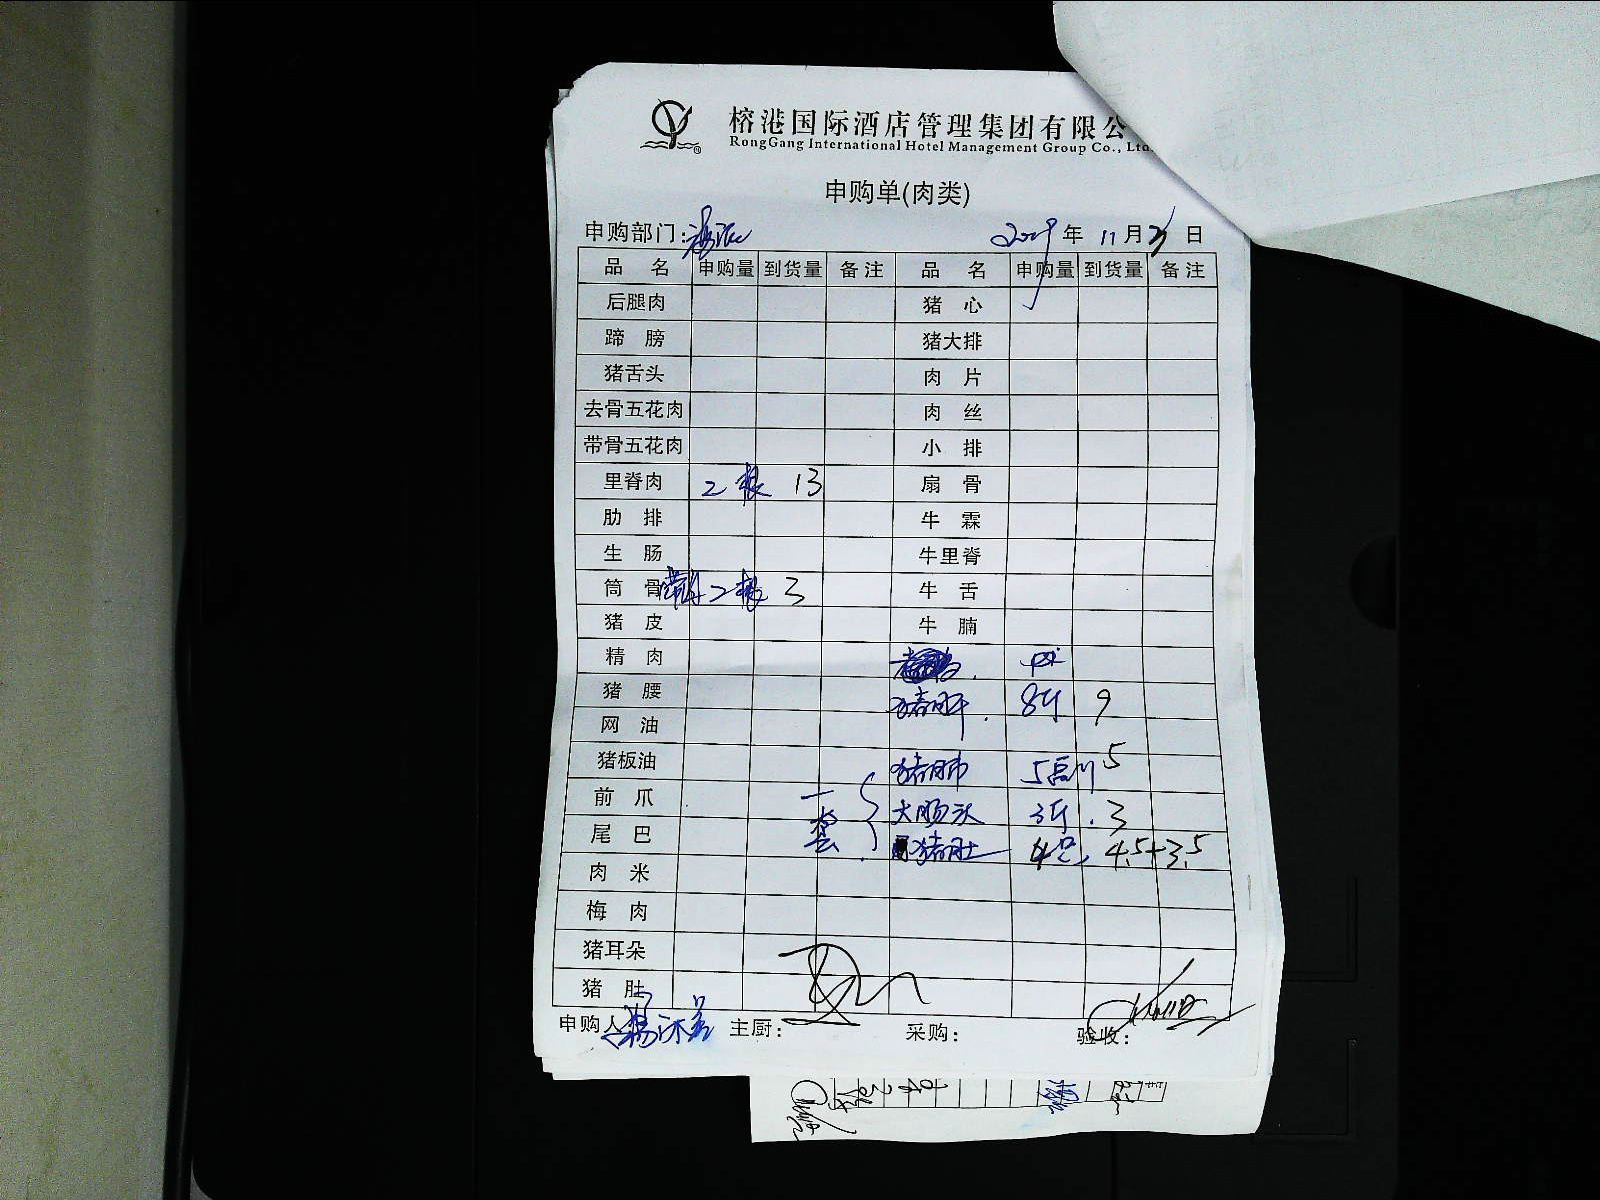 榕港国际酒店管理集团有限公
RongGang International Hotel Management Group Co., Ltd.
申购单(肉类)
申购部门: 年 11 月 日
品 名 申购量 到货量 备注 品 名 申购量 到货量 备注
后腿肉 猪 心
蹄 膀 猪大排
猪舌头 肉 片
去骨五花肉 肉 丝
带骨五花肉 小 排
里脊肉 2根 13 扇 骨
肋 排 牛 霖
生 肠 牛里脊
筒 骨 2根 3 牛 舌
猪 皮 牛 腩
精 肉
猪 腰 猪肝 8斤 9
网 油
猪板油 猪肺 5 5
前 爪 一 大肠头 3斤 3
尾 巴 套 猪肚 4只 4.5+3.5
肉 米
梅 肉
猪耳朵
猪 肚
申购人: 主厨: 采购: 验收: